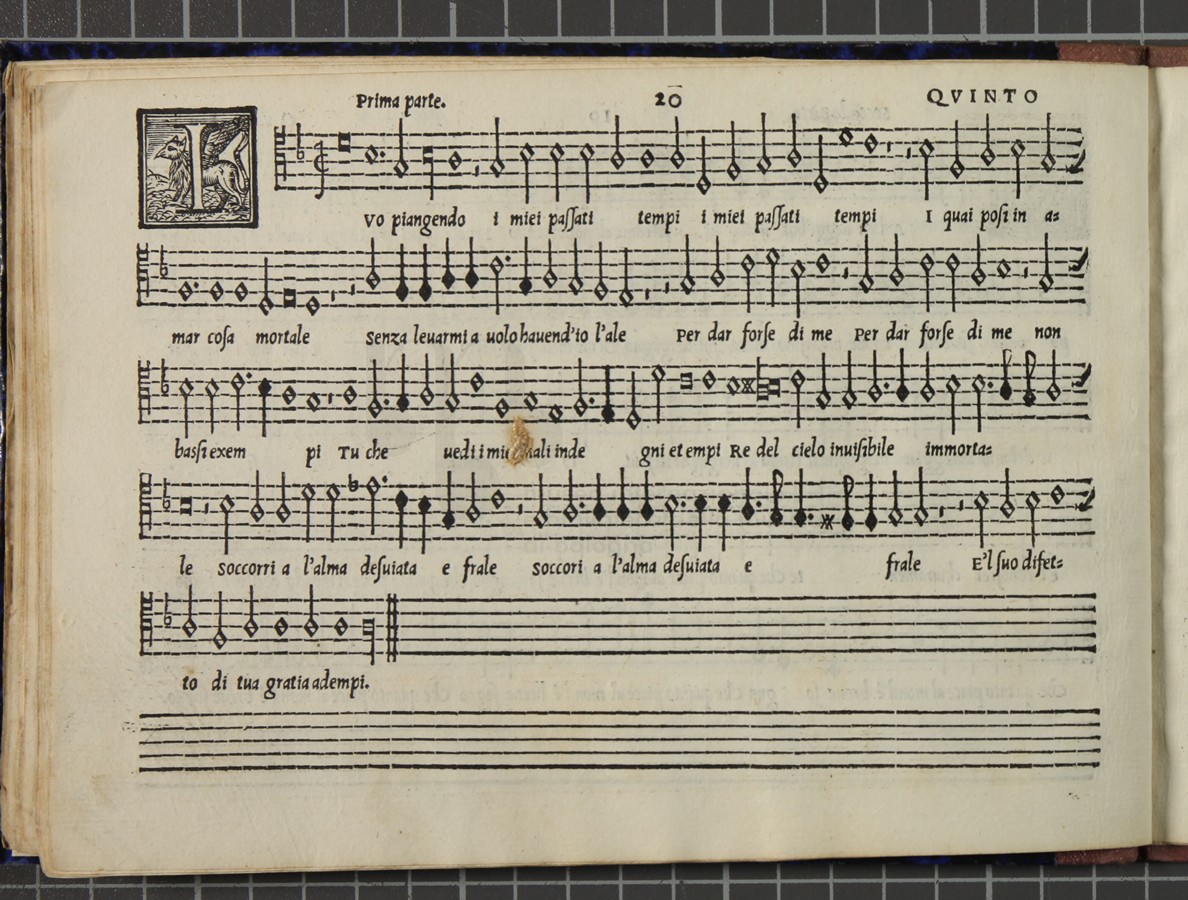 Prima parte. 20 QVINTO
I
vo piangendo i miei paſſati tempi i miei paſſati tempi I quai poſi in a=
mar coſa mortale Senza leuarmi a uolo hauend'io l'ale Per dar forſe di me Per dar forſe di me non
baſſi exem pi Tu che uedi i miei mali inde gni et empi Re del cielo inuiſibile immorta=
le ſoccorri a l'alma deſuiata e frale ſoccori a l'alma deſuiata e frale E'l ſuo difet=
to di tua gratia adempi.